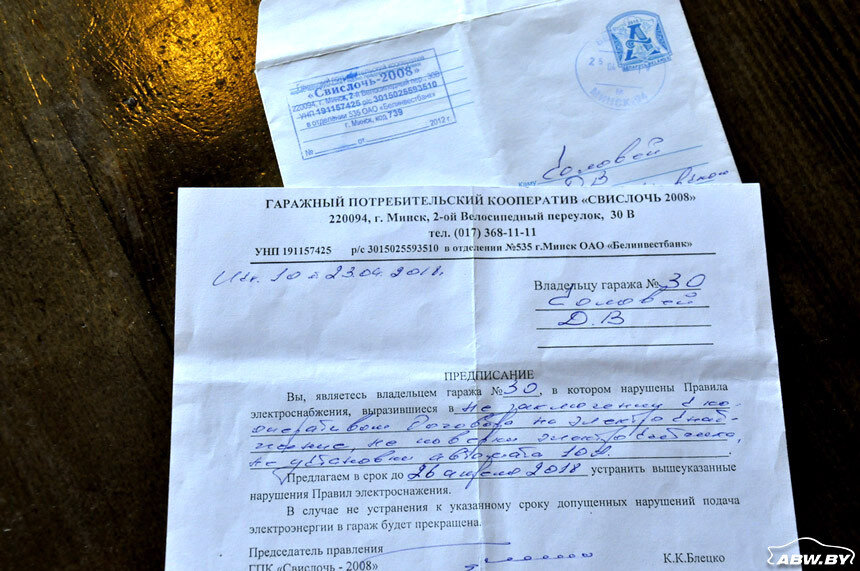 «Свислочь-2008»
220094, г. Минск, 2-й Велосипедный пер., 30В
УНП 191157425 р/с 3015025593510
в отделении 535 ОАО «Белинвестбанк»
г. Минск, код 739
№ от 2012 г.
А
БЕЛАРУСЬ
25
МИНСК
Кому Соловей
Д В
ГАРАЖНЫЙ ПОТРЕБИТЕЛЬСКИЙ КООПЕРАТИВ «СВИСЛОЧЬ 2008»
220094, г. Минск, 2-ой Велосипедный переулок, 30 В
тел. (017) 368-11-11
УНП 191157425 р/с 3015025593510 в отделении №535 г.Минск ОАО «Белинвестбанк»
Исх. 10 от 23.04.2018г.
Владельцу гаража № 30
Соловей
Д.В
ПРЕДПИСАНИЕ
Вы, являетесь владельцем гаража № 30, в котором нарушены Правила
электроснабжения, выразившиеся в не заключении с ко-
оперативом Договора на электроснаб-
жение, не поверки электросчетчика,
не установки автомата 10А.
Предлагаем в срок до 26 апреля 2018 устранить вышеуказанные
нарушения Правил электроснажения.
В случае не устранения к указанному сроку допущенных нарушений подача
электроэнергии в гараж будет прекращена.
Председатель правления
ГПК «Свислочь - 2008» К.К.Блецко
ABW.BY